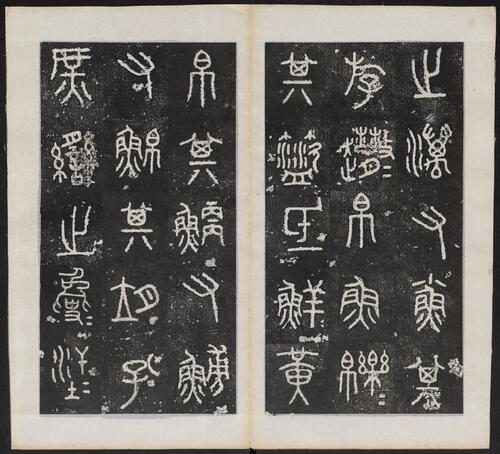 之澫又小魚其
斿趣=帛魚皪=
其盜氐鮮黃
帛其鯾又鰟
又鮊其孔
庶臠之㚟=汗=